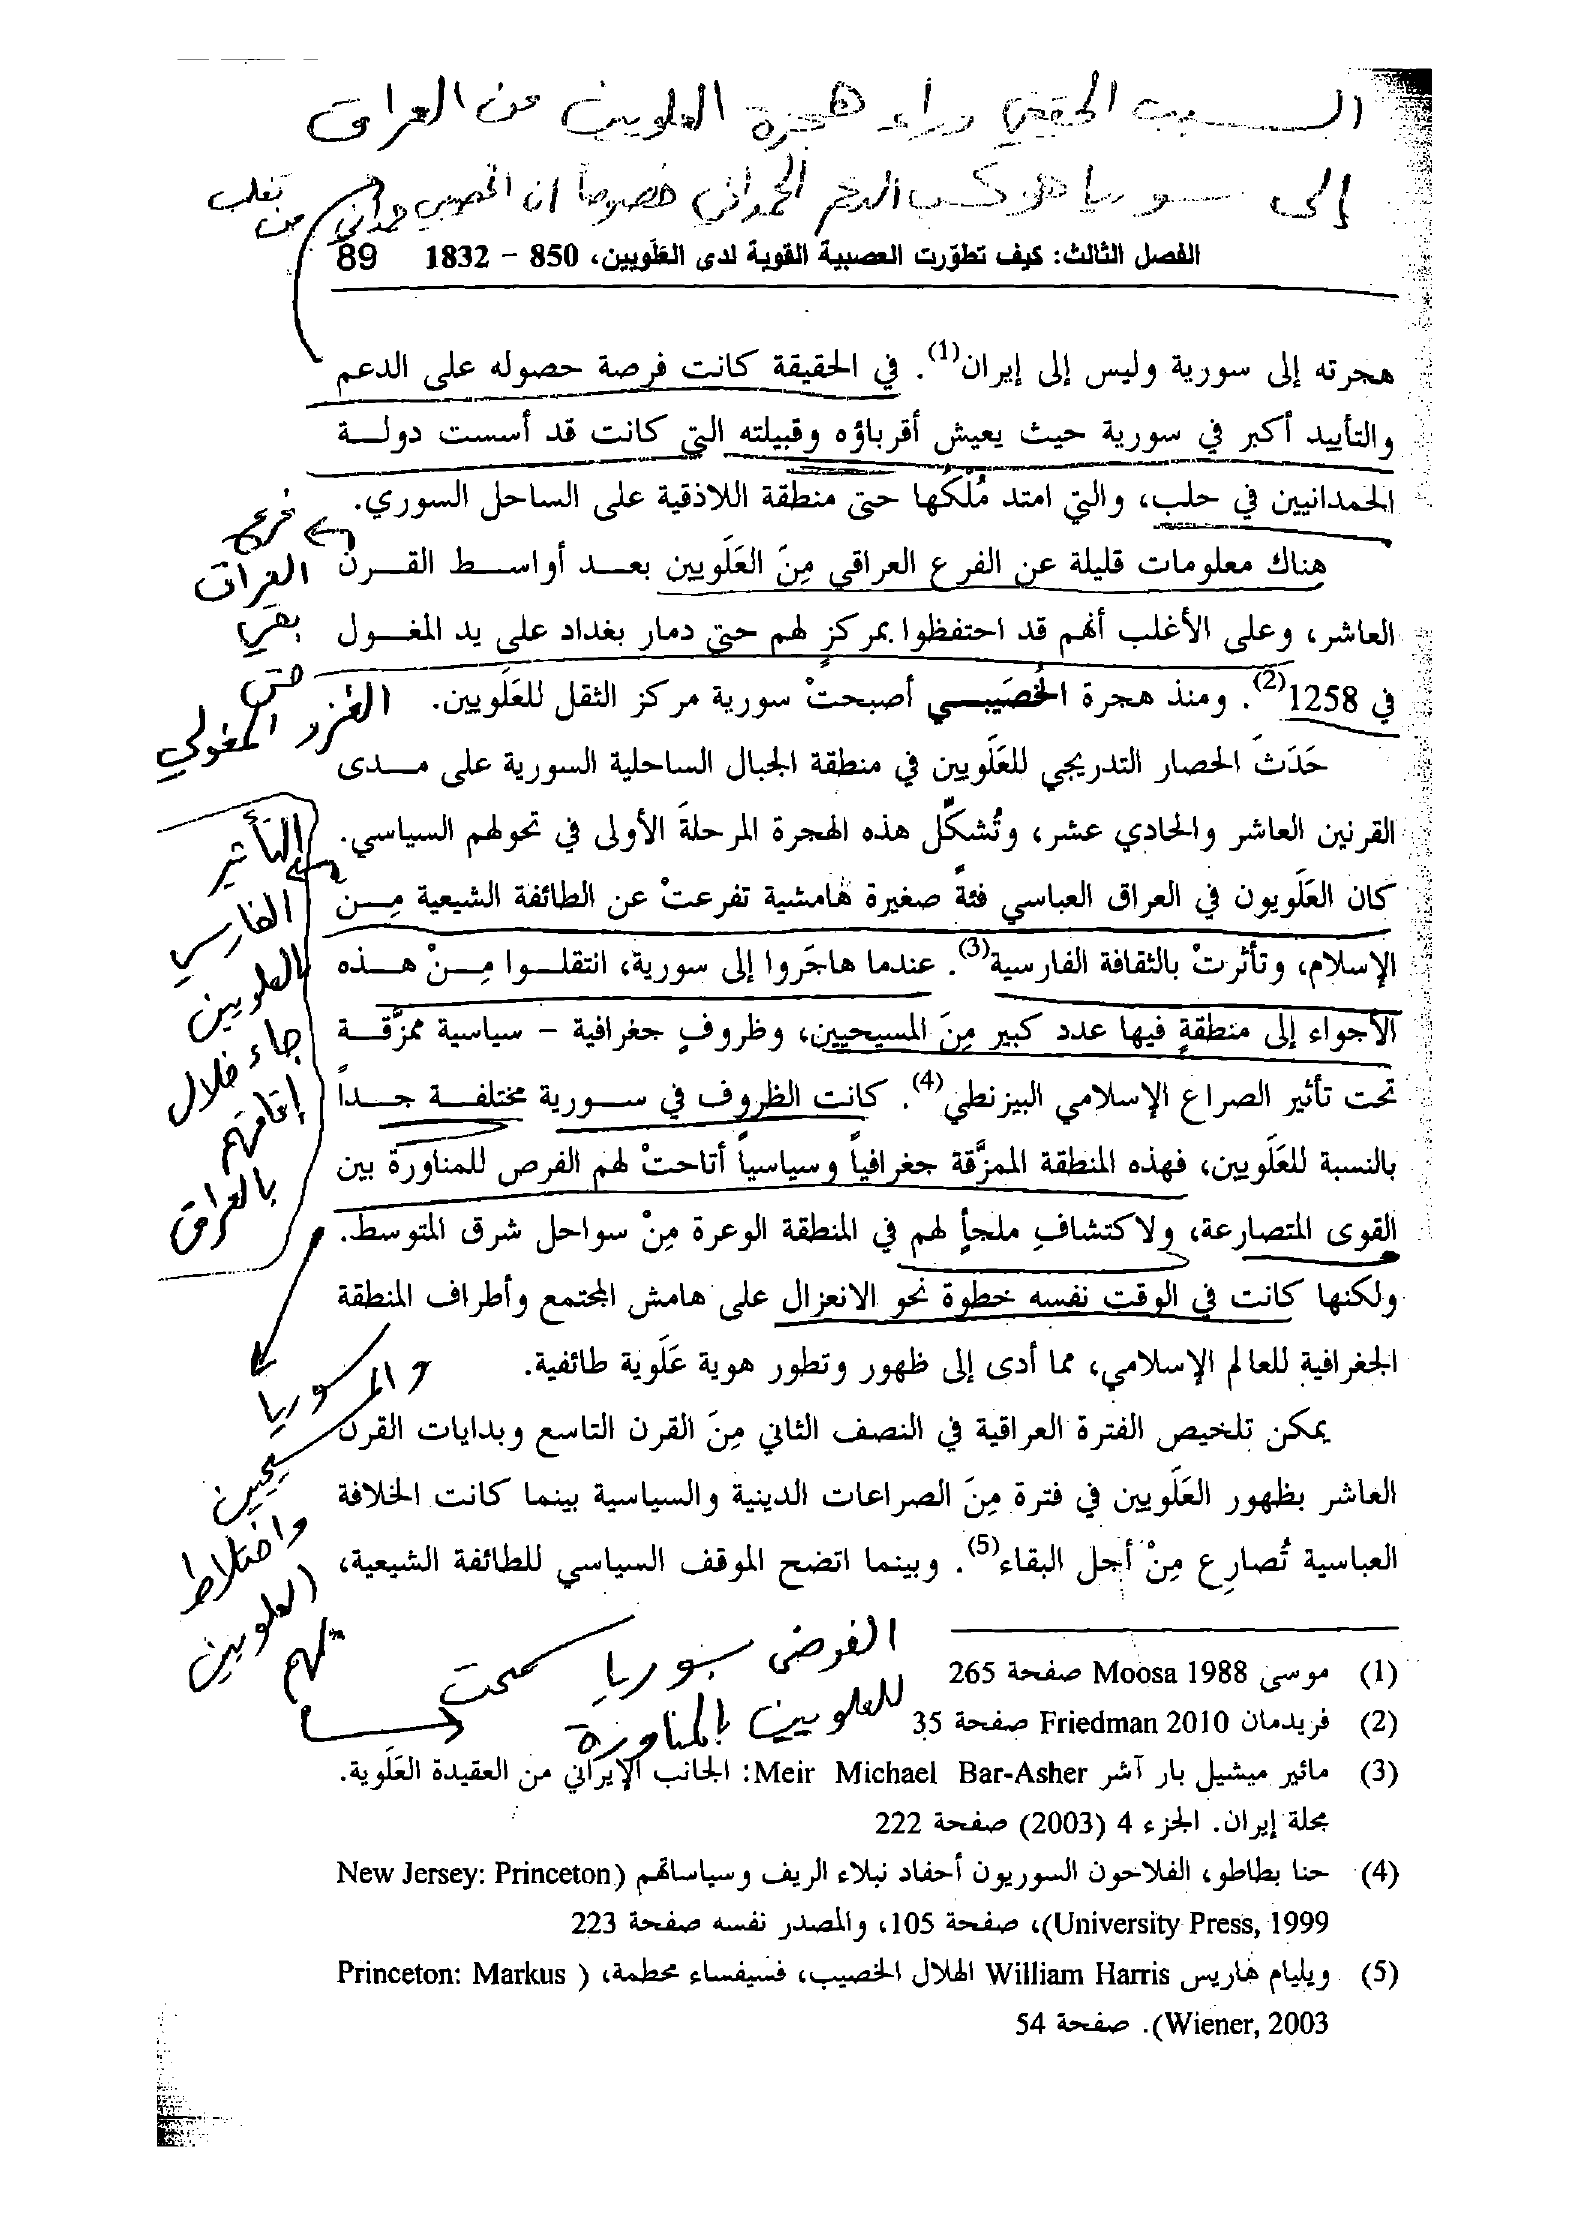 السبب الحقيقي وراء هجرة العلويين من العراق
إلى سوريا هو كسب الدعم الحمداني خصوصاً ان الخصيبي حمداني من تغلب
الفصل الثالث: كيف تطوّرت العصبية القوية لدى العَلَويين، 850 – 1832 89
هجرته إلى سورية وليس إلى إيران(1). في الحقيقة كانت فرصة حصوله على الدعم
والتأييد أكبر في سورية حيث يعيش أقرباؤه وقبيلته التي كانت قد أسست دولة
الحمدانيين في حلب، والتي امتد مُلْكُها حتى منطقة اللاذقية على الساحل السوري.
هناك معلومات قليلة عن الفرع العراقي مِنَ العَلَويين بعد أواسط القرن
العاشر، وعلى الأغلب أنهم قد احتفظوا بمركزٍ لهم حتى دمار بغداد على يد المغول
في 1258(2). ومنذ هجرة الخُصَيبي أصبحتْ سورية مركز الثقل للعَلَويين.
حَدَثَ الحصار التدريجي للعَلَويين في منطقة الجبال الساحلية السورية على مدى
القرنين العاشر والحادي عشر، وتُشكِّل هذه الهجرة المرحلةَ الأولى في تحولهم السياسي.
كان العَلَويون في العراق العباسي فئةً صغيرة هامشية تفرعتْ عن الطائفة الشيعية مِن
الإسلام، وتأثرتْ بالثقافة الفارسية(3). عندما هاجَروا إلى سورية، انتقلوا مِنْ هذه
الأجواء إلى منطقةٍ فيها عدد كبير مِنَ المسيحيين، وظروفٍ جغرافية – سياسية ممزَّقة
تحت تأثير الصراع الإسلامي البيزنطي(4). كانت الظروف في سورية مختلفة جداً
بالنسبة للعَلَويين، فهذه المنطقة الممزَّقة جغرافياً وسياسياً أتاحتْ لهم الفرص للمناورة بين
القوى المتصارعة، ولاكتشافِ ملجأٍ لهم في المنطقة الوعرة مِنْ سواحل شرق المتوسط.
ولكنها كانت في الوقت نفسه خطوة نحو الانعزال على هامش المجتمع وأطراف المنطقة
الجغرافية للعالم الإسلامي، مما أدى إلى ظهور وتطور هوية عَلَوية طائفية.
يمكن تلخيص الفترة العراقية في النصف الثاني مِنَ القرن التاسع وبدايات القرن
العاشر بظهور العَلَويين في فترة مِنَ الصراعات الدينية والسياسية بينما كانت الخلافة
العباسية تُصارِع مِنْ أجل البقاء(5). وبينما اتضح الموقف السياسي للطائفة الشيعية،
فرع
العراق
بقي
حتى
الغزو المغولي
التأثير
الفارسي
بالعلويين
جاء خلال
إقامتهم
بالعراق
سوريا
والمسيحيين
واختلاط
العلويين
بهم
الفوضى بسوريا سمحت
للعلويين بالمناورة
(1) موسى Moosa 1988 صفحة 265
(2) فريدمان Friedman 2010 صفحة 35
(3) مائير ميشيل بار آشر Meir Michael Bar-Asher: الجانب الإيراني من العقيدة العَلَوية.
مجلة إيران. الجزء 4 (2003) صفحة 222
(4) حنا بطاطو، الفلاحون السوريون أحفاد نبلاء الريف وسياساتهم (New Jersey: Princeton
University Press, 1999)، صفحة 105، والمصدر نفسه صفحة 223
(5) ويليام هاريس William Harris الهلال الخصيب، فسيفساء محطمة، (Princeton: Markus
Wiener, 2003). صفحة 54